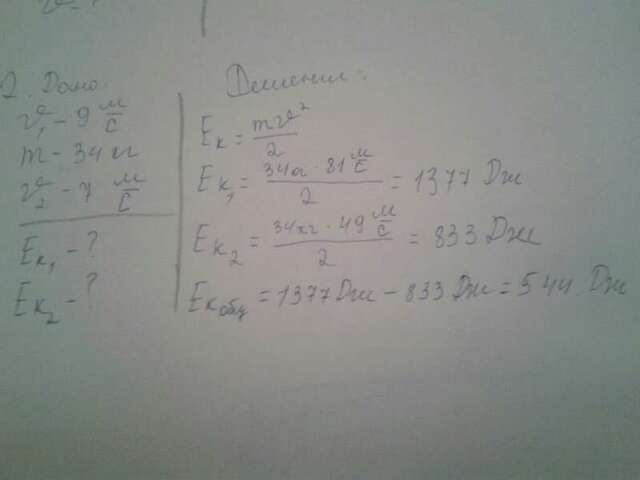 2. Дано:
v₁ - 9 м/с
m - 34 кг
v₂ - 7 м/с
Eк₁ - ?
Eк₂ - ?
Решение:
Eк = mv²/2
Eк₁ = 34кг · 81 м/с / 2 = 1377 Дж
Eк₂ = 34кг · 49 м/с / 2 = 833 Дж
Eк общ = 1377 Дж - 833 Дж = 544 Дж